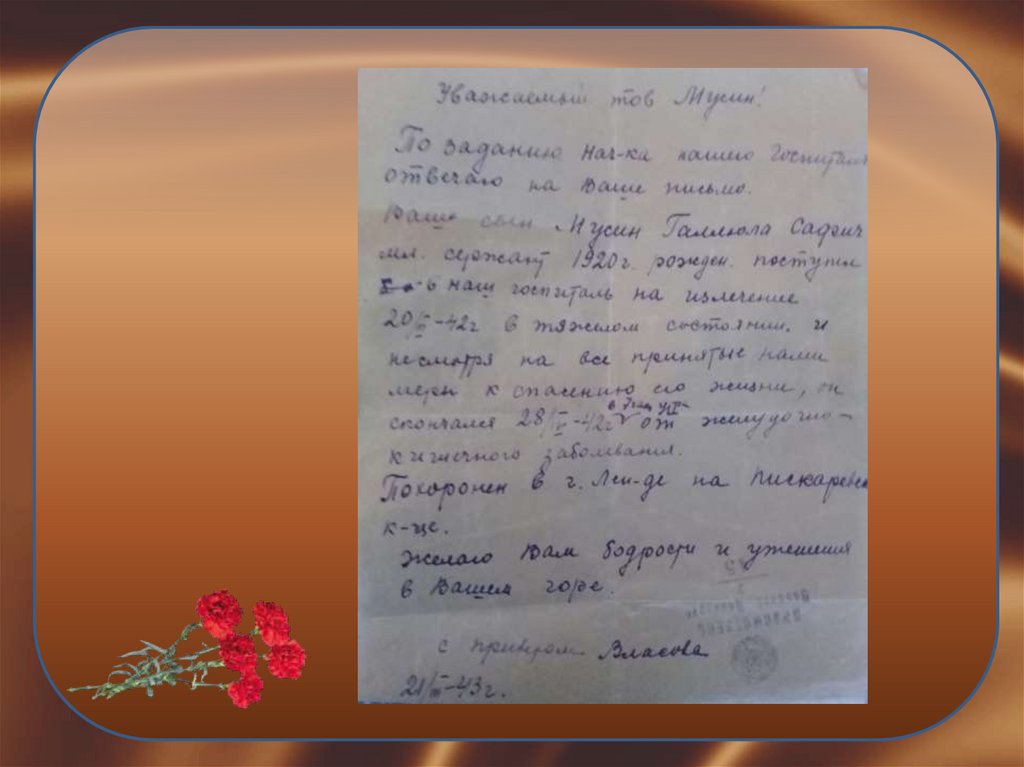 Уважаемый тов Мусин!
По заданию нач-ка нашего Госпиталя
отвечаю на Ваше письмо.
Ваш сын Мусин Галлюла Садрич
мл. сержант 1920 г. рожден. поступил
в наш госпиталь на излечение
20/II-42г в тяжелом состоянии. и
несмотря на все принятые нами
меры к спасению его жизни, он
скончался 28/-42г от желудочно-
кишечного заболевания.
Похоронен в г. Лен-де на Пискаревск
к-ще.
Желаю Вам бодрости и утешения
в Вашем горе.
с приветом Власова
21/III-43г.
ПРОСМОТРЕНО